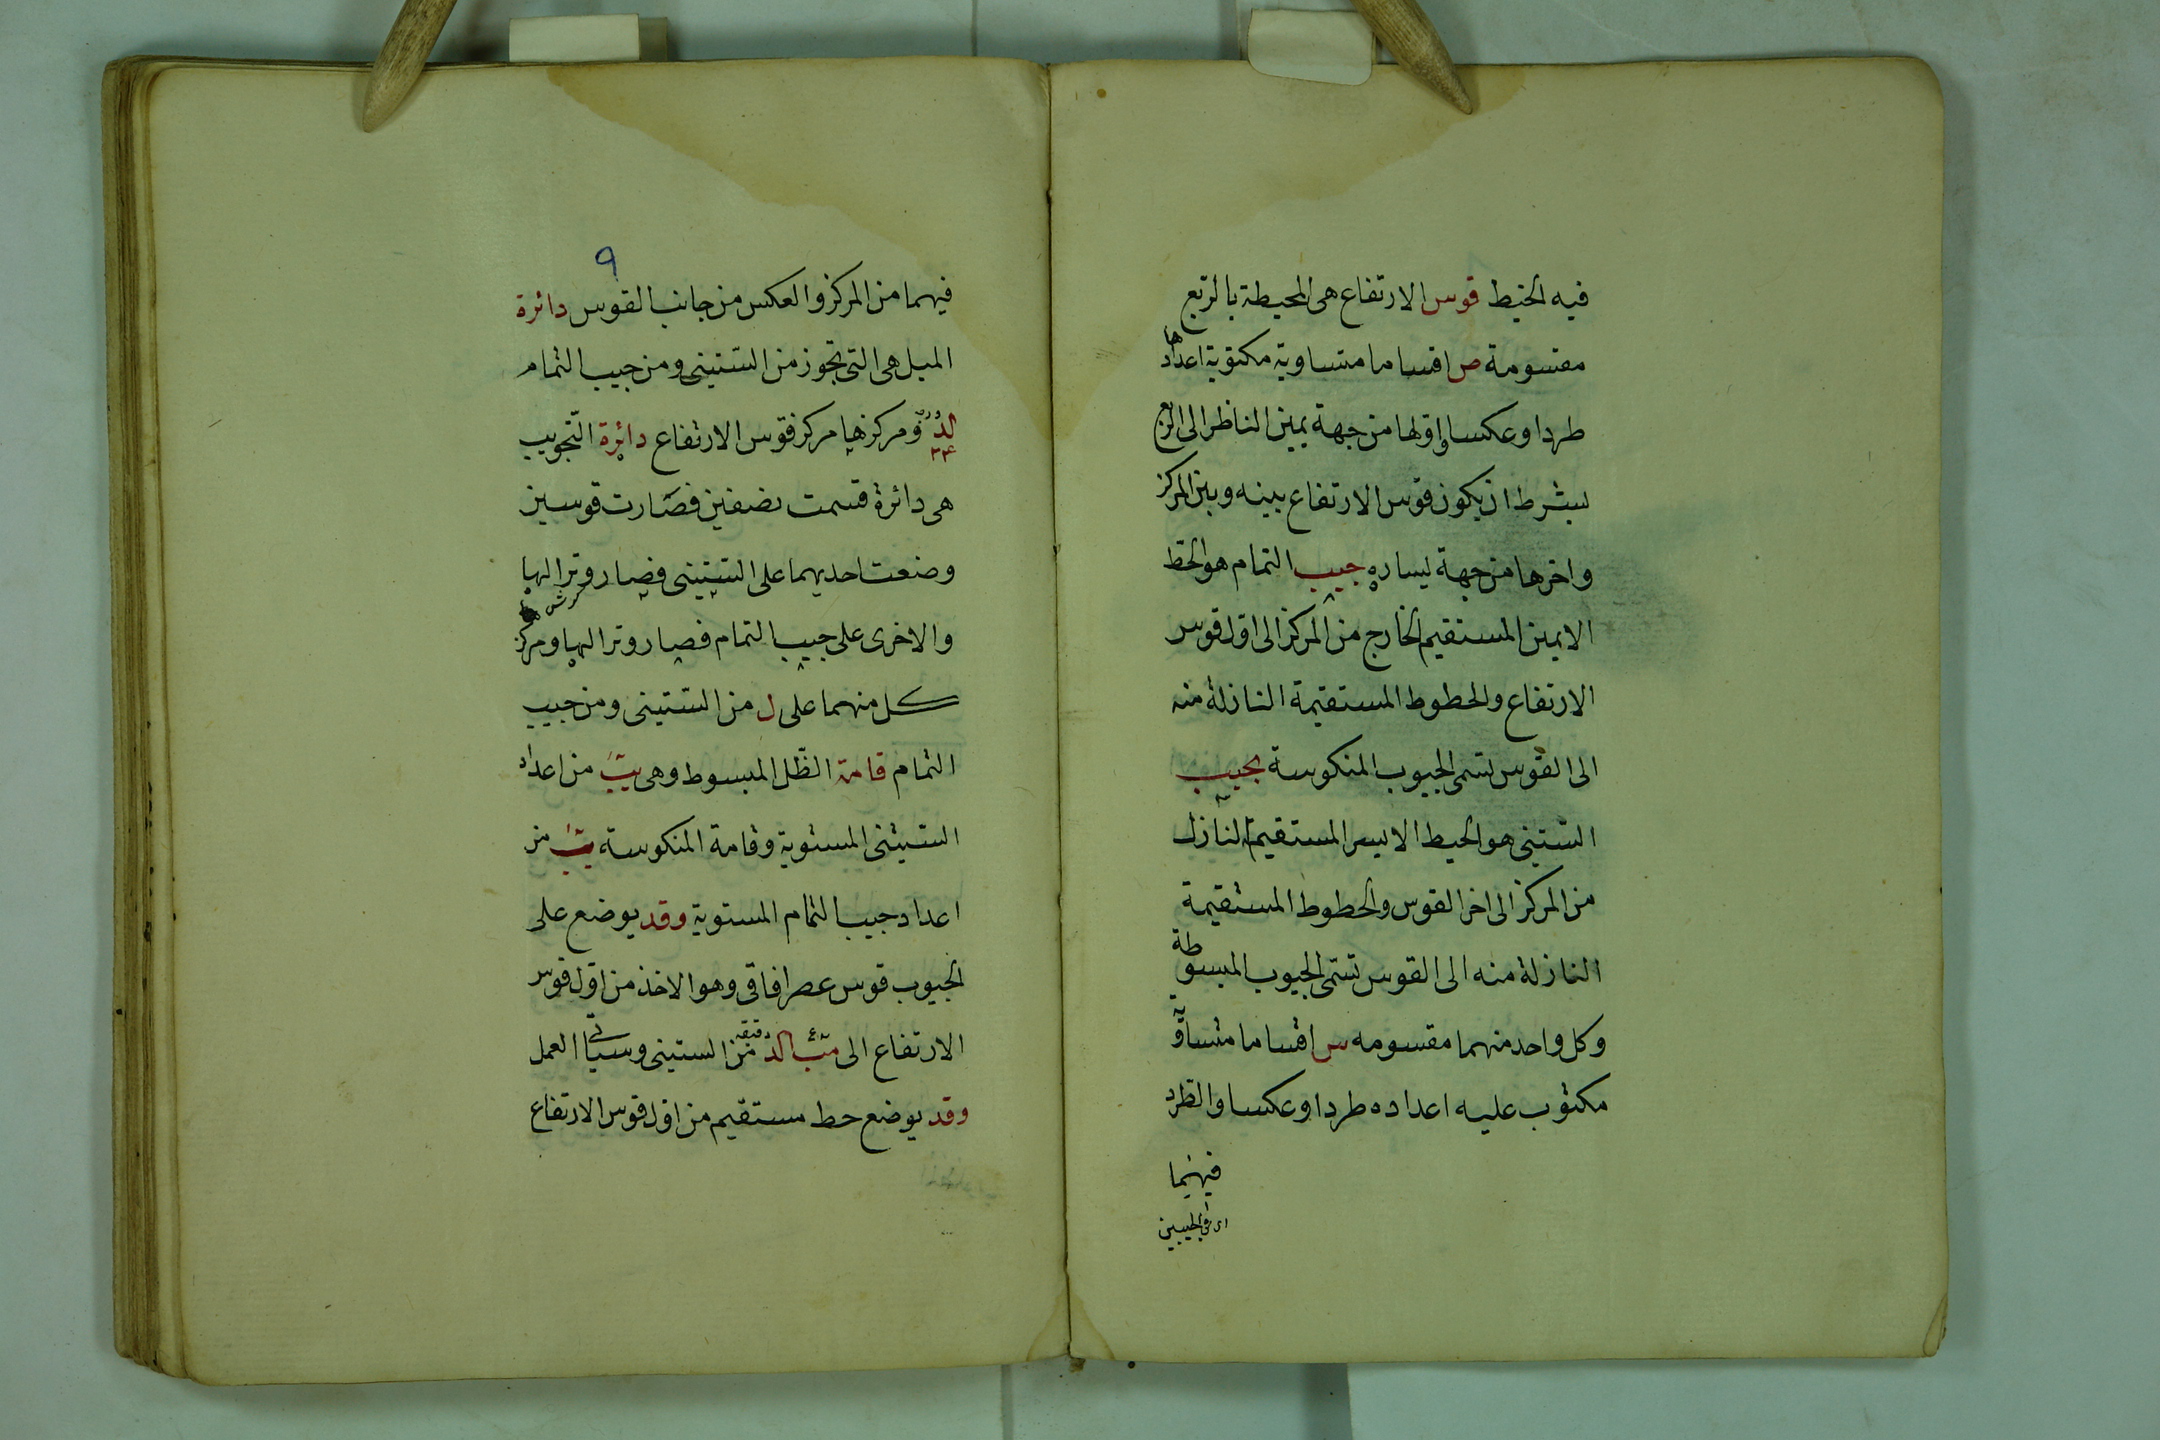 فيه الخيط قوس الارتفاع هى المحيطة بالربع
مقسومة ص اقساما متساوية مكتوبة اعدادها
طردا وعكسا واولها من جهة يمين الناظر الى الربع
بشرط ان يكون قوس الارتفاع بينه وبين المركز
واخرها من جهة يساره جيب التمام هو الخط
الايمن المستقيم الخارج من المركز الى اول قوس
الارتفاع والخطوط المستقيمة النازلة منه
الى القوس تسمى الجيوب المنكوسة جيب
الستينى هو الخيط الايسر المستقيم النازل
من المركز الى اخر القوس والخطوط المستقيمة
النازلة منه الى القوس تسمى الجيوب المبسوطة
وكل واحد منهما مقسومه س اقساما متساوية
مكتوب عليه اعداده طردا وعكسا والطرد
فيهما
اى فى الجيبين
٩
فيهما من المركز والعكس من جانب القوس دائرة
الميل هى التى تجوز من الستينى ومن جيب التمام
لد ٢٤ ومركزها مركز قوس الارتفاع دائرة التجويب
هى دائرة قسمت نصفين فصارت قوسين
وضعت احديهما على الستينى فصار وترا لها
والاخرى على جيب التمام فصار وترا لها ومركز
كل منهما على ل من الستينى ومن جيب
التمام قامة الظل المبسوط وهى يب من اعداد
الستينى المستوية وقامة المنكوسة يب من
اعداد جيب التمام المستوية وقد يوضع على
الجيوب قوس عصر افاقى وهو الاخذ من اول قوس
الارتفاع الى مب لد دقيقه من الستينى وسياتى العمل
وقد يوضع خط مستقيم من اول قوس الارتفاع